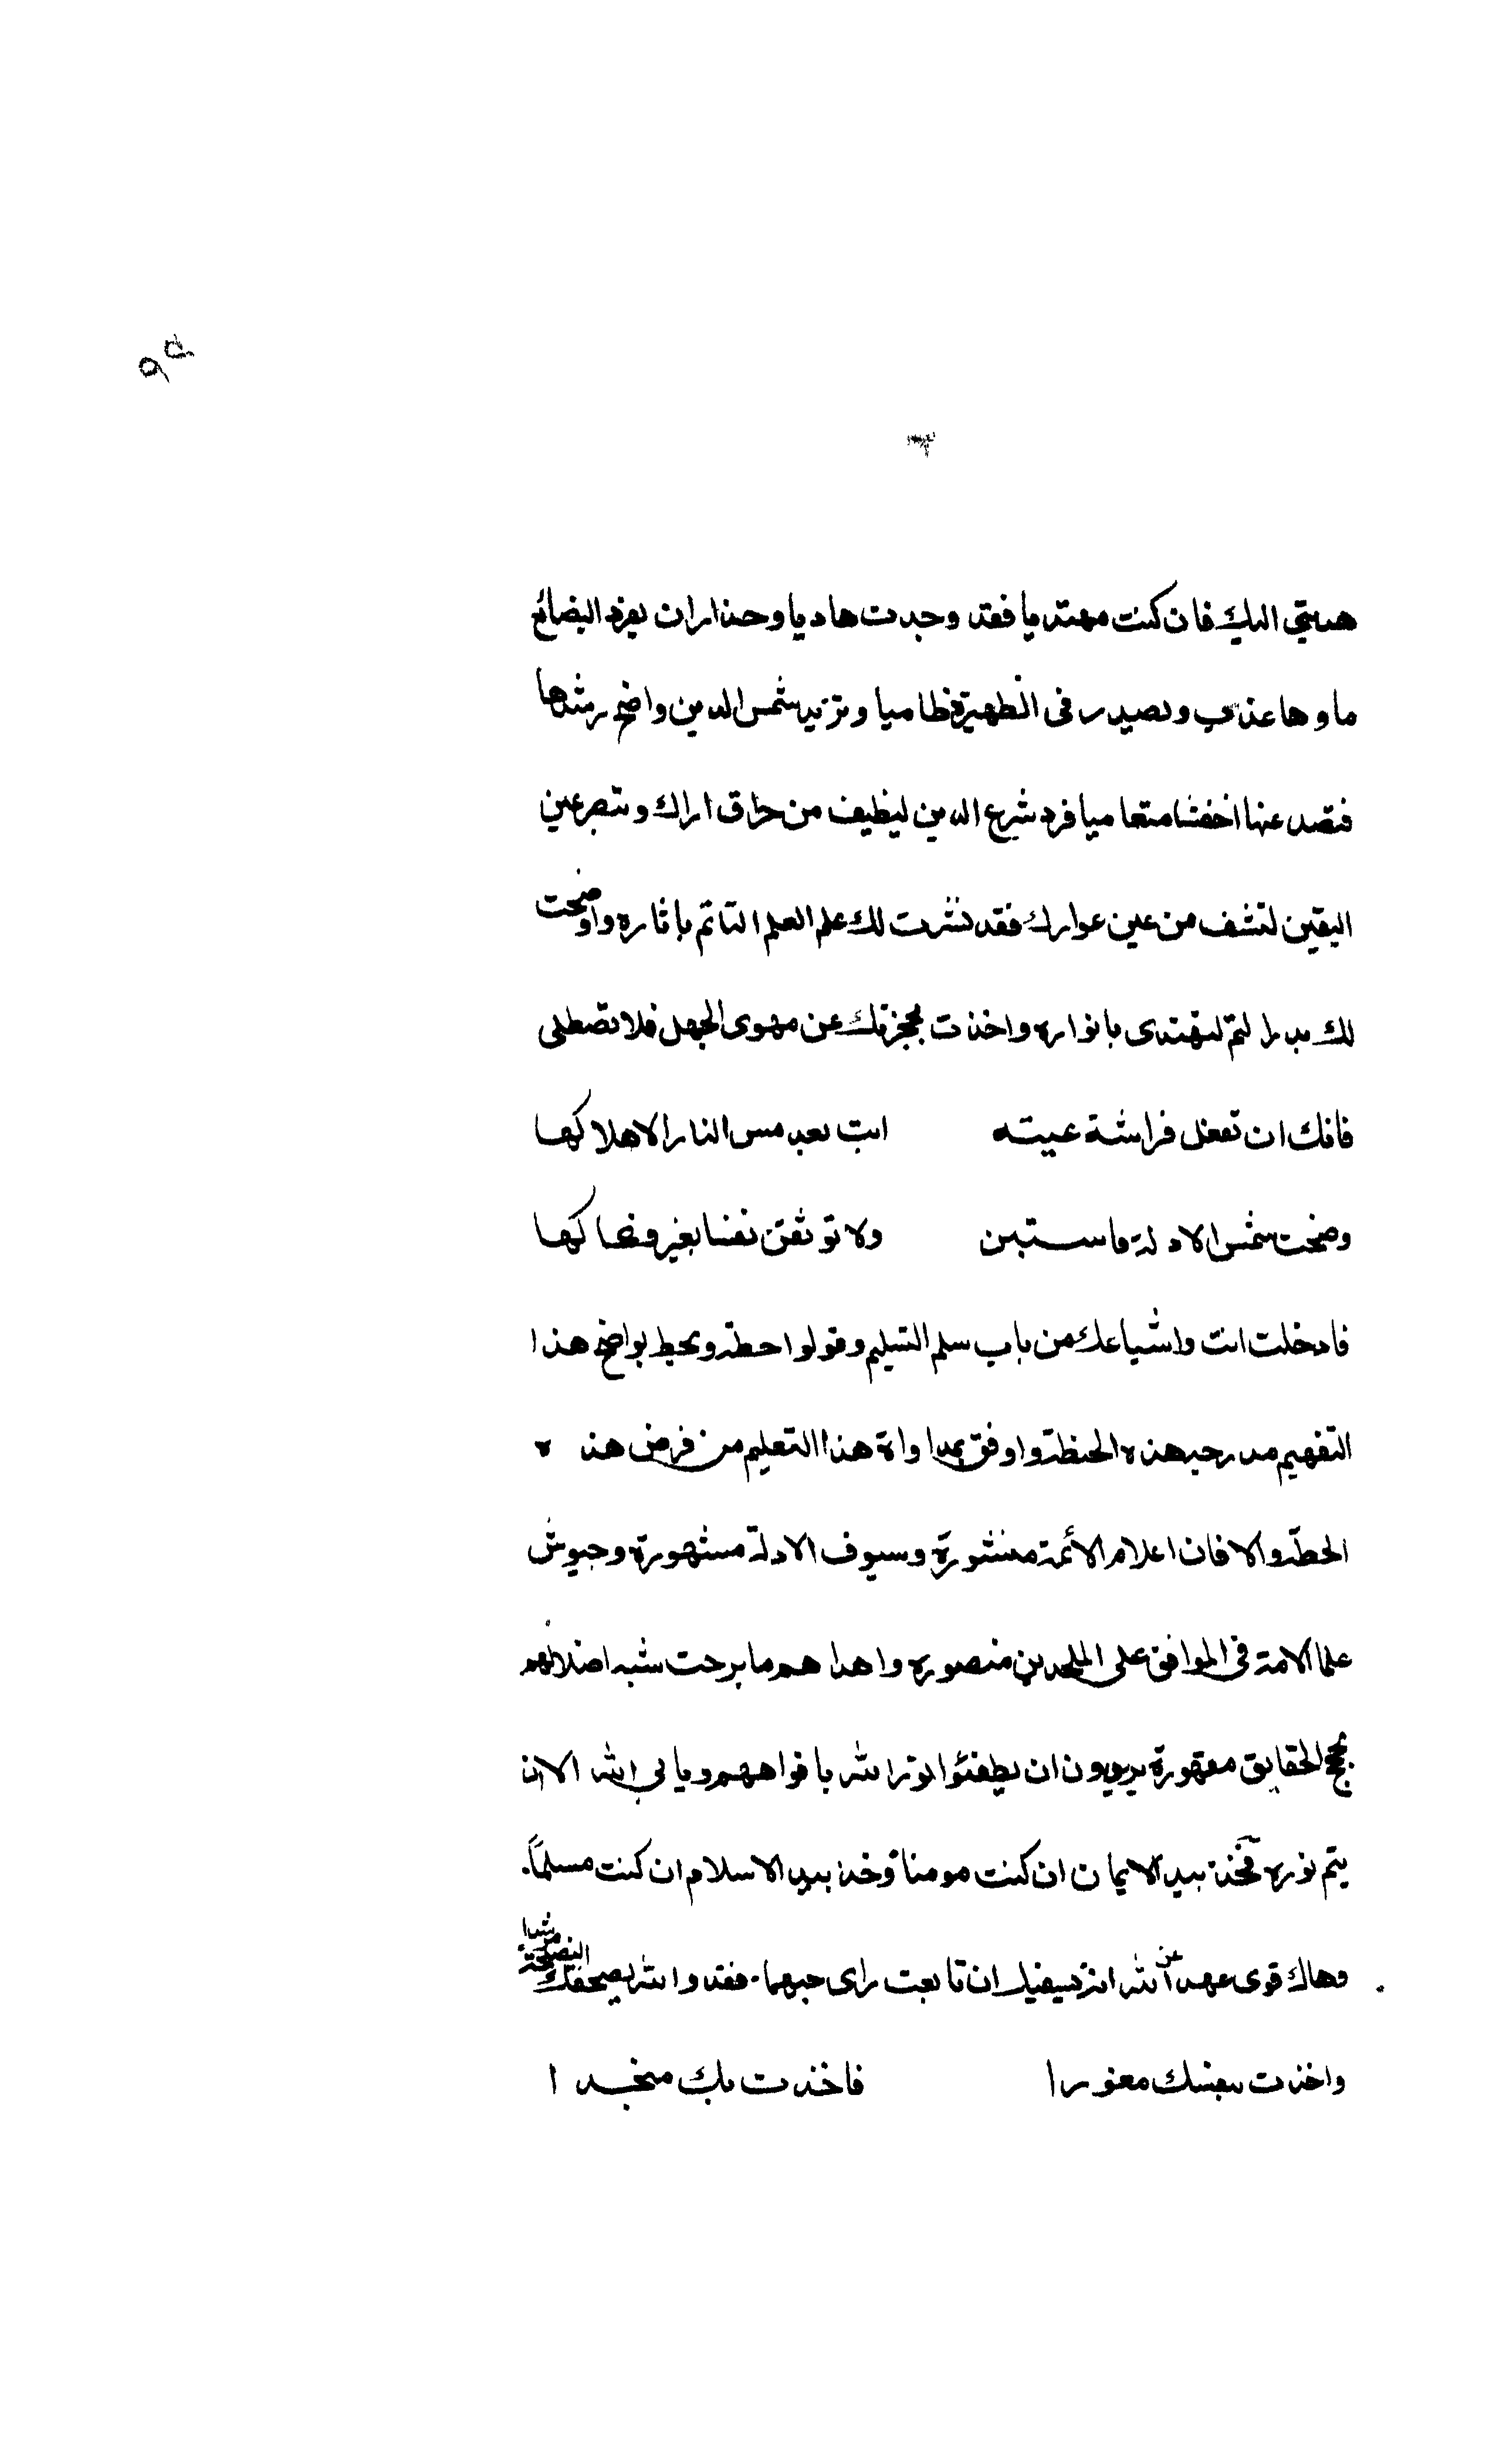 هديتي اليك فان كنت مهتديا فقد وجدت هاديا وحذار ان
ماوها عذب وتصدر في الظهيرة ظاميا وتريد شمس الدين واضح رشدها
فتصد عنها اخفشا متعاميا فرد شرع الدين من اراك وتبصر عين
اليقين لتشف من عين عوارك فقد نشرت لك علم العلم لتاتم باثاره واوضحت
لك بدر التم لتهتدى بانواره واخذت بحجزتك عن مهوى الجهل فلا تصطلى
فانك ان تفعل فراشة ابت بعد مس النار الا هلاكها
وضحت شمس الادلة فاستبن ولا توثقن نفسا بغير فكاكها
فادخلت انت واشياعك من باب سلم التسليم وقولوا حطة وتحط بواضح هذا
التفهيم هذه واوفق بمداواة هذا التعليم من فرض هذه
الحطة والا فان اعلام الأئمة منشورة وسيوف الادلة مشهورة وجيوش
علما الامة في الموافق على الملحدين منصوره هم ما برحت شبه اضلالهم
بحجج الحقايق مقهورة يريدون ان يطفئوا نور الله بافواههم ويابى الله الا ان
يتم نوره فخذ بيد الايمان ان كنت مومنا وخذ بيد الاسلام ان كنت مسلماً.
وهاك قوى عهد عن الله ان تابعت راى فقد والله النصيحة مرشدا
واخذت فاخذت بك منجدا